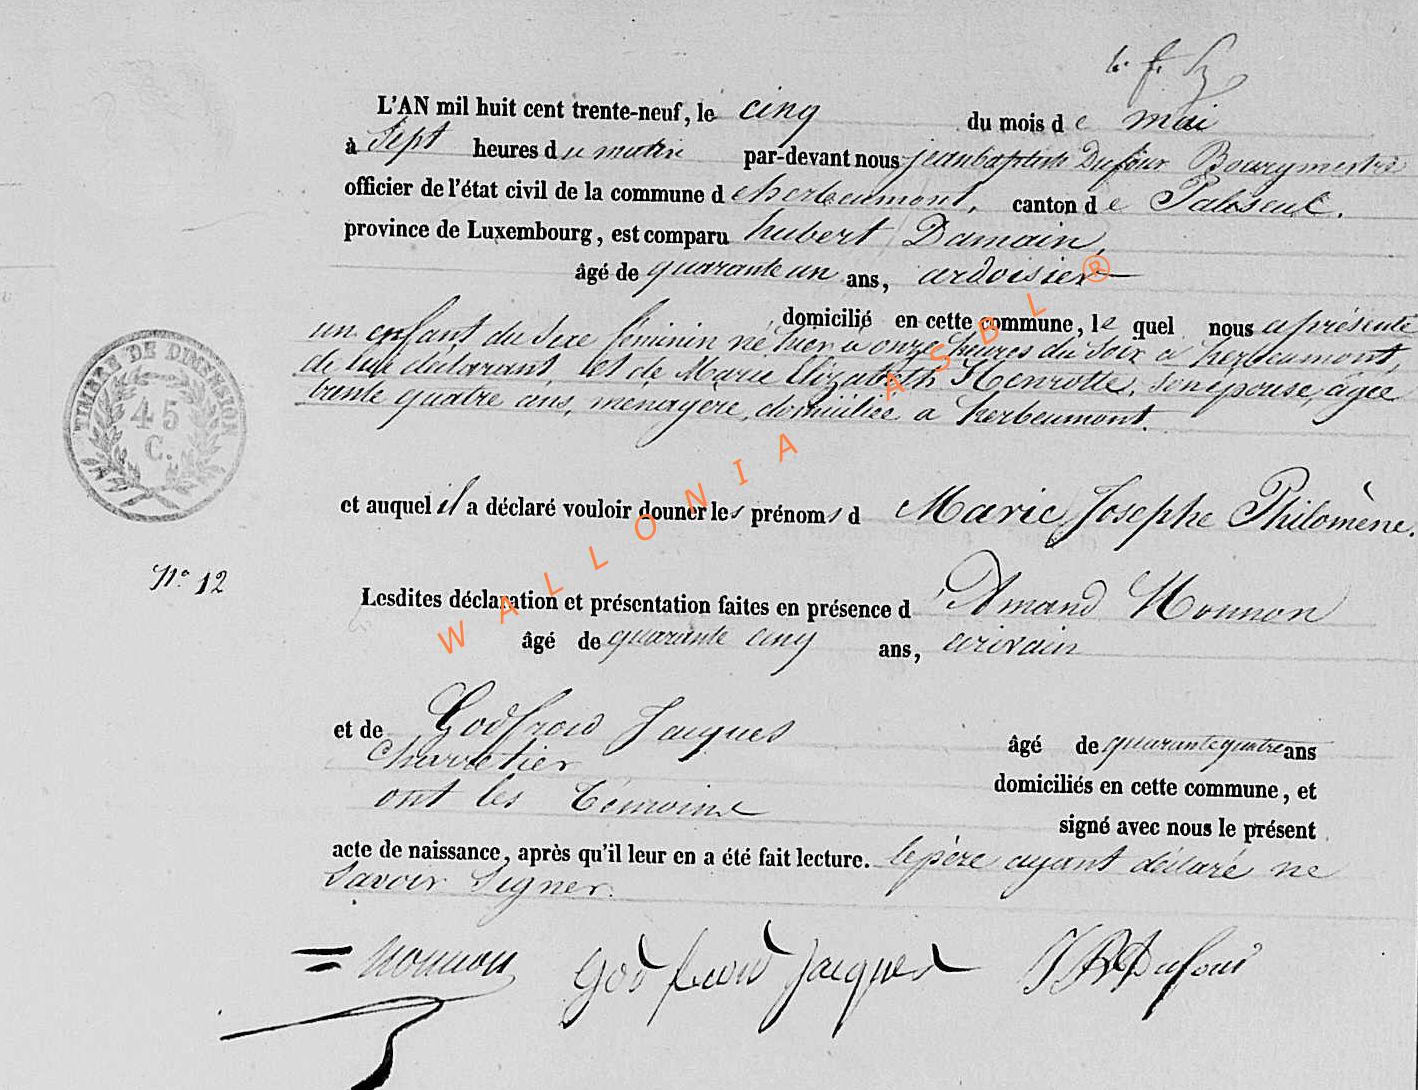 L'AN mil huit cent trente-neuf, le cinq du mois de mai
à Sept heures du matin par-devant nous jeanbaptiste Dufour Bourgmestre
officier de l'état civil de la commune d'herbeumont, canton de Paliseul.
province de Luxembourg, est comparu hubert Damain,
âgé de quarante un ans, ardoisier
domicilié en cette commune, le quel nous a présenté
un enfant du Sexe féminin né hier a onze heures du Soir a herbeumont,
de lui déclarant, et de Marie Elizabeth Henrotte, Son epouse, agée
trente quatre ans, menagère, domiciliée a herbeumont.
et auquel il a déclaré vouloir donner les prénoms d Marie Josephe Philomène.
TIMBRE DE DIMENSION
45
C.
N° 12
Lesdites déclaration et présentation faites en présence d'Amand Nounon
âgé de quarante cinq ans, ecrivain
et de Godfroid Jacques âgé de quarante quatre ans
Charretier domiciliés en cette commune, et
ont les témoins signé avec nous le présent
acte de naissance, après qu'il leur en a été fait lecture. le père ayant déclaré ne
Savoir Signer.
Nounon Godfroid Jacques JB Dufour
WALLONIA ASBL ®